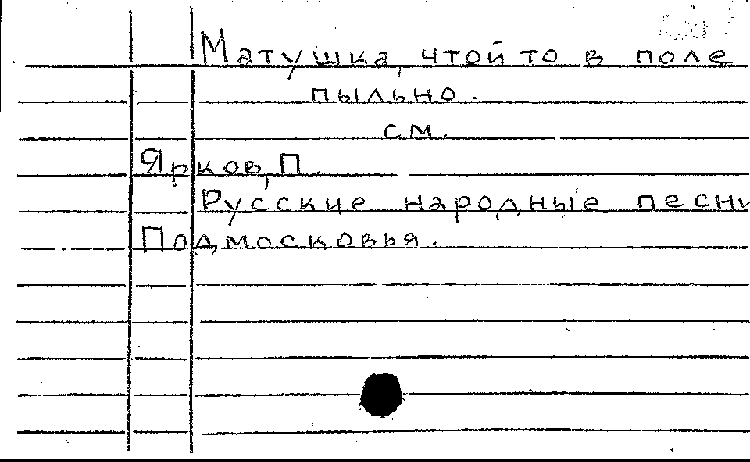 Матушка, чтой то в поле
пыльно.
см.
Ярков, П.
Русские народные песни
Подмосковья.